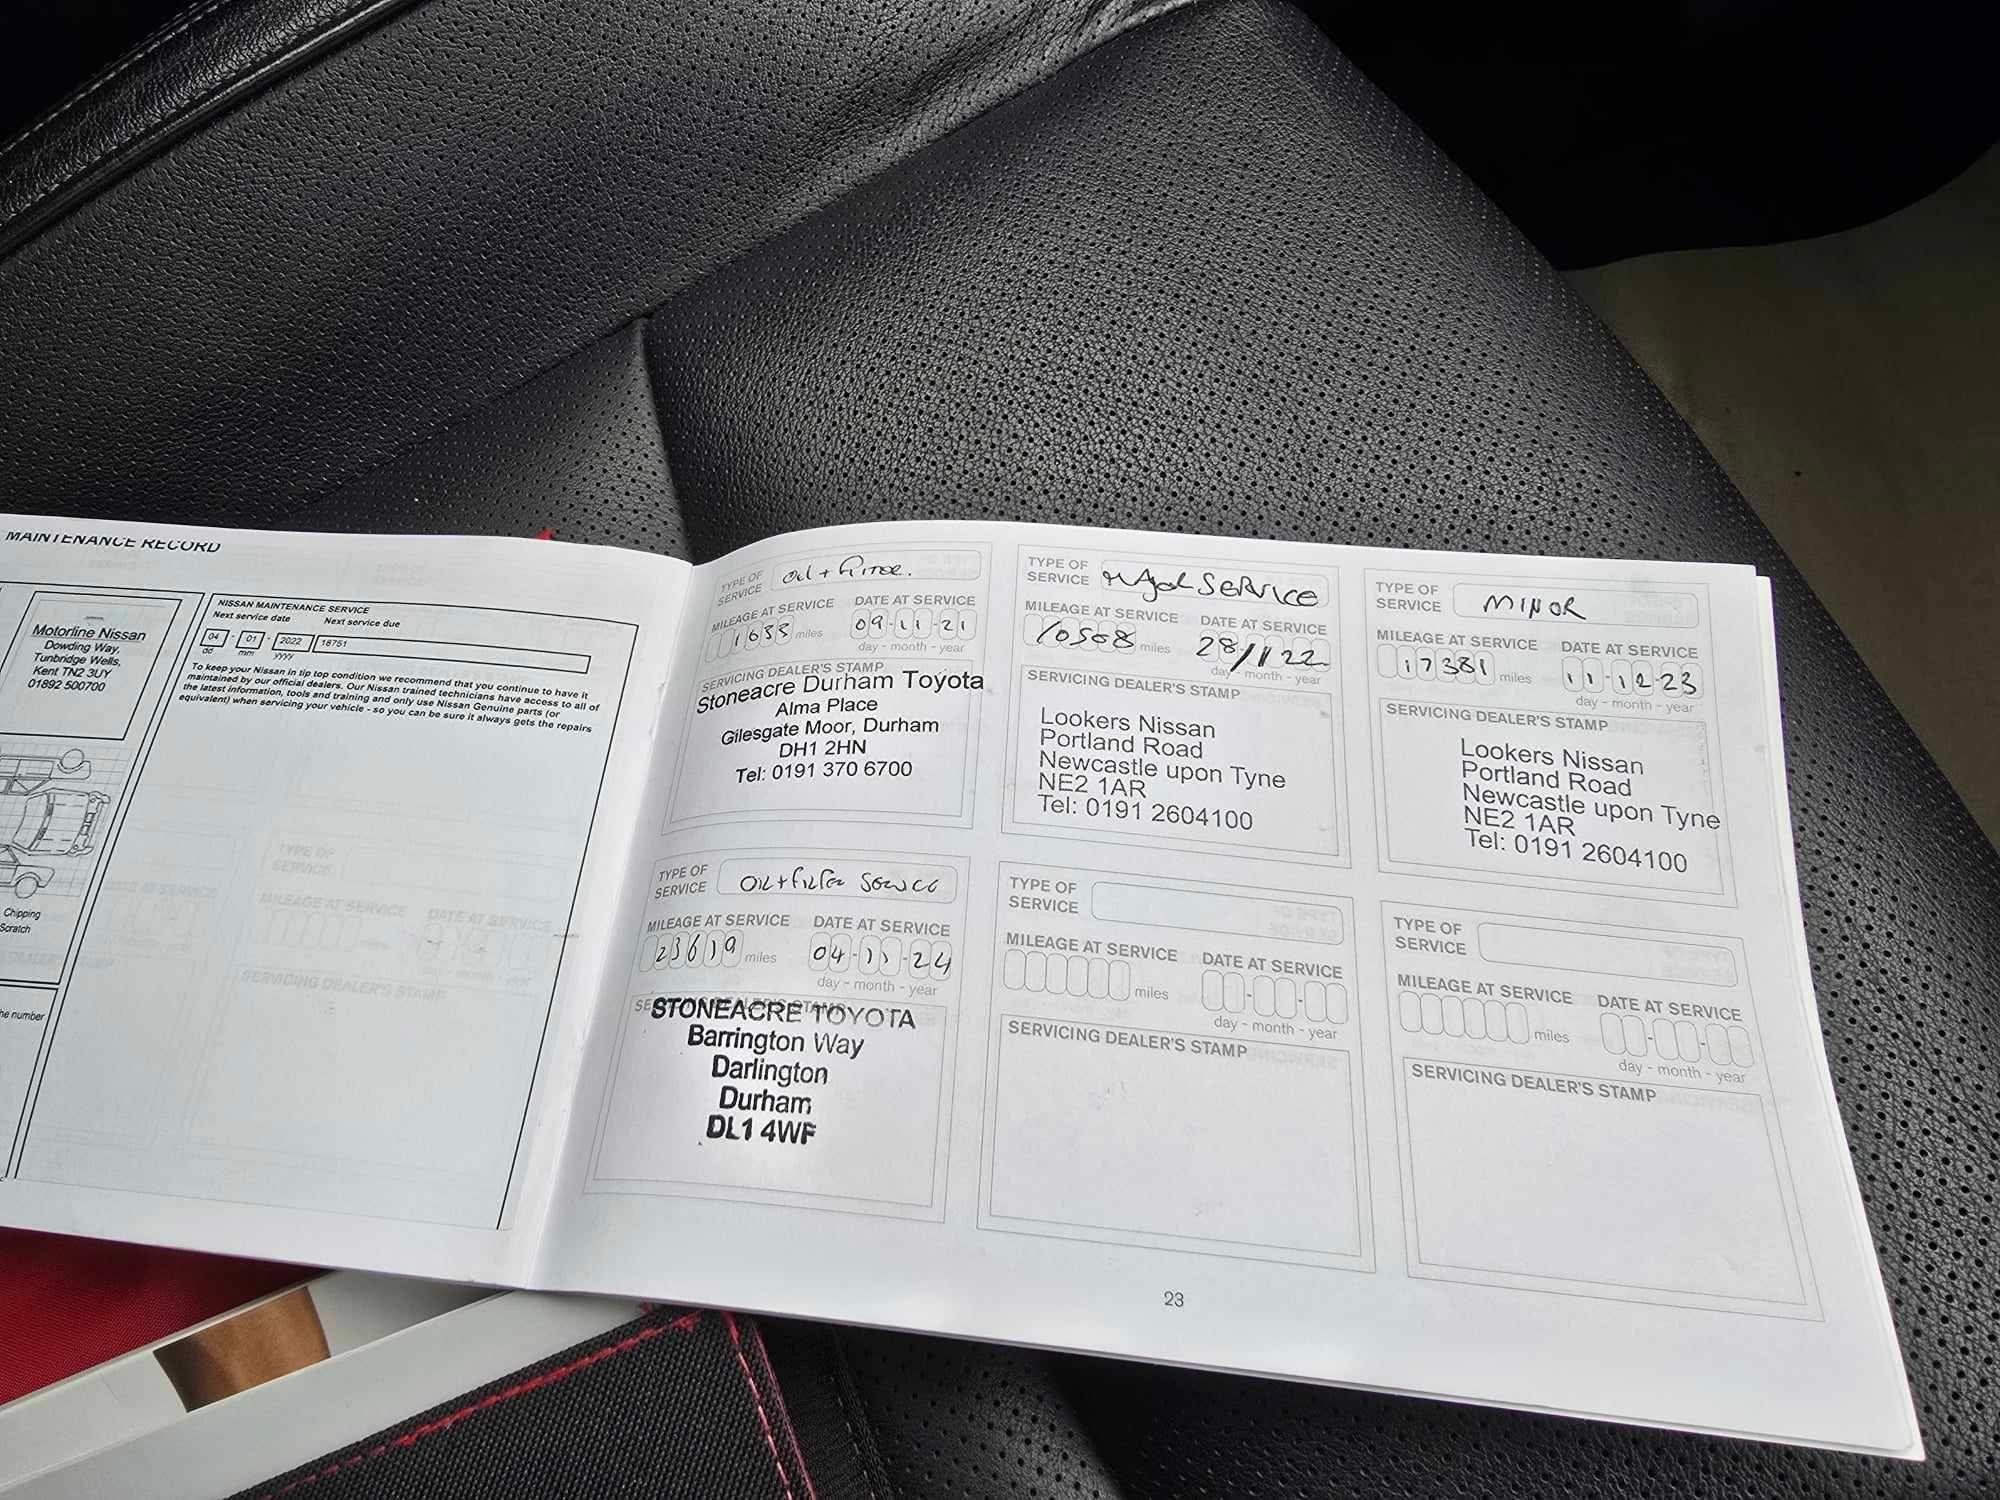 MAINTENANCE RECORD
Motorline Nissan
Dowding Way,
Tunbridge Wells,
Kent TN2 3UY
01892 500700
NISSAN MAINTENANCE SERVICE
Next service date Next service due
04 - 01 - 2022 18751
dd mm yyyy
To keep your Nissan in tip top condition we recommend that you continue to have it
maintained by our official dealers. Our Nissan trained technicians have access to all of
the latest information, tools and training and only use Nissan Genuine parts (or
equivalent) when servicing your vehicle - so you can be sure it always gets the repairs
Chipping
Scratch
he number
TYPE OF
SERVICE Oil + Filter.
MILEAGE AT SERVICE DATE AT SERVICE
1033 miles 09-11-21
day - month - year
SERVICING DEALER'S STAMP
Stoneacre Durham Toyota
Alma Place
Gilesgate Moor, Durham
DH1 2HN
Tel: 0191 370 6700
TYPE OF
SERVICE Major SERVICE
MILEAGE AT SERVICE DATE AT SERVICE
10508 miles 28/11 22
day - month - year
SERVICING DEALER'S STAMP
Lookers Nissan
Portland Road
Newcastle upon Tyne
NE2 1AR
Tel: 0191 2604100
TYPE OF
SERVICE MINOR
MILEAGE AT SERVICE DATE AT SERVICE
17381 miles 11-12-23
day - month - year
SERVICING DEALER'S STAMP
Lookers Nissan
Portland Road
Newcastle upon Tyne
NE2 1AR
Tel: 0191 2604100
TYPE OF
SERVICE OIL + FILTER SERVICE
MILEAGE AT SERVICE DATE AT SERVICE
23619 miles 04-11-24
day - month - year
SERVICING DEALER'S STAMP
STONEACRE TOYOTA
Barrington Way
Darlington
Durham
DL1 4WF
TYPE OF
SERVICE
MILEAGE AT SERVICE DATE AT SERVICE
miles
day - month - year
SERVICING DEALER'S STAMP
TYPE OF
SERVICE
MILEAGE AT SERVICE DATE AT SERVICE
miles
day - month - year
SERVICING DEALER'S STAMP
23